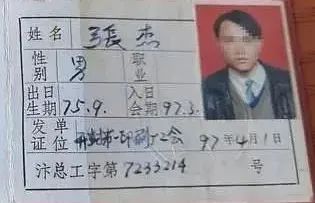 姓名 張杰
性别 男 职业
出生日期 75.9. 入会日期 97.3.
发证单位 开封市一印刷厂工会 97年4月1日
汴总工字第7233214号